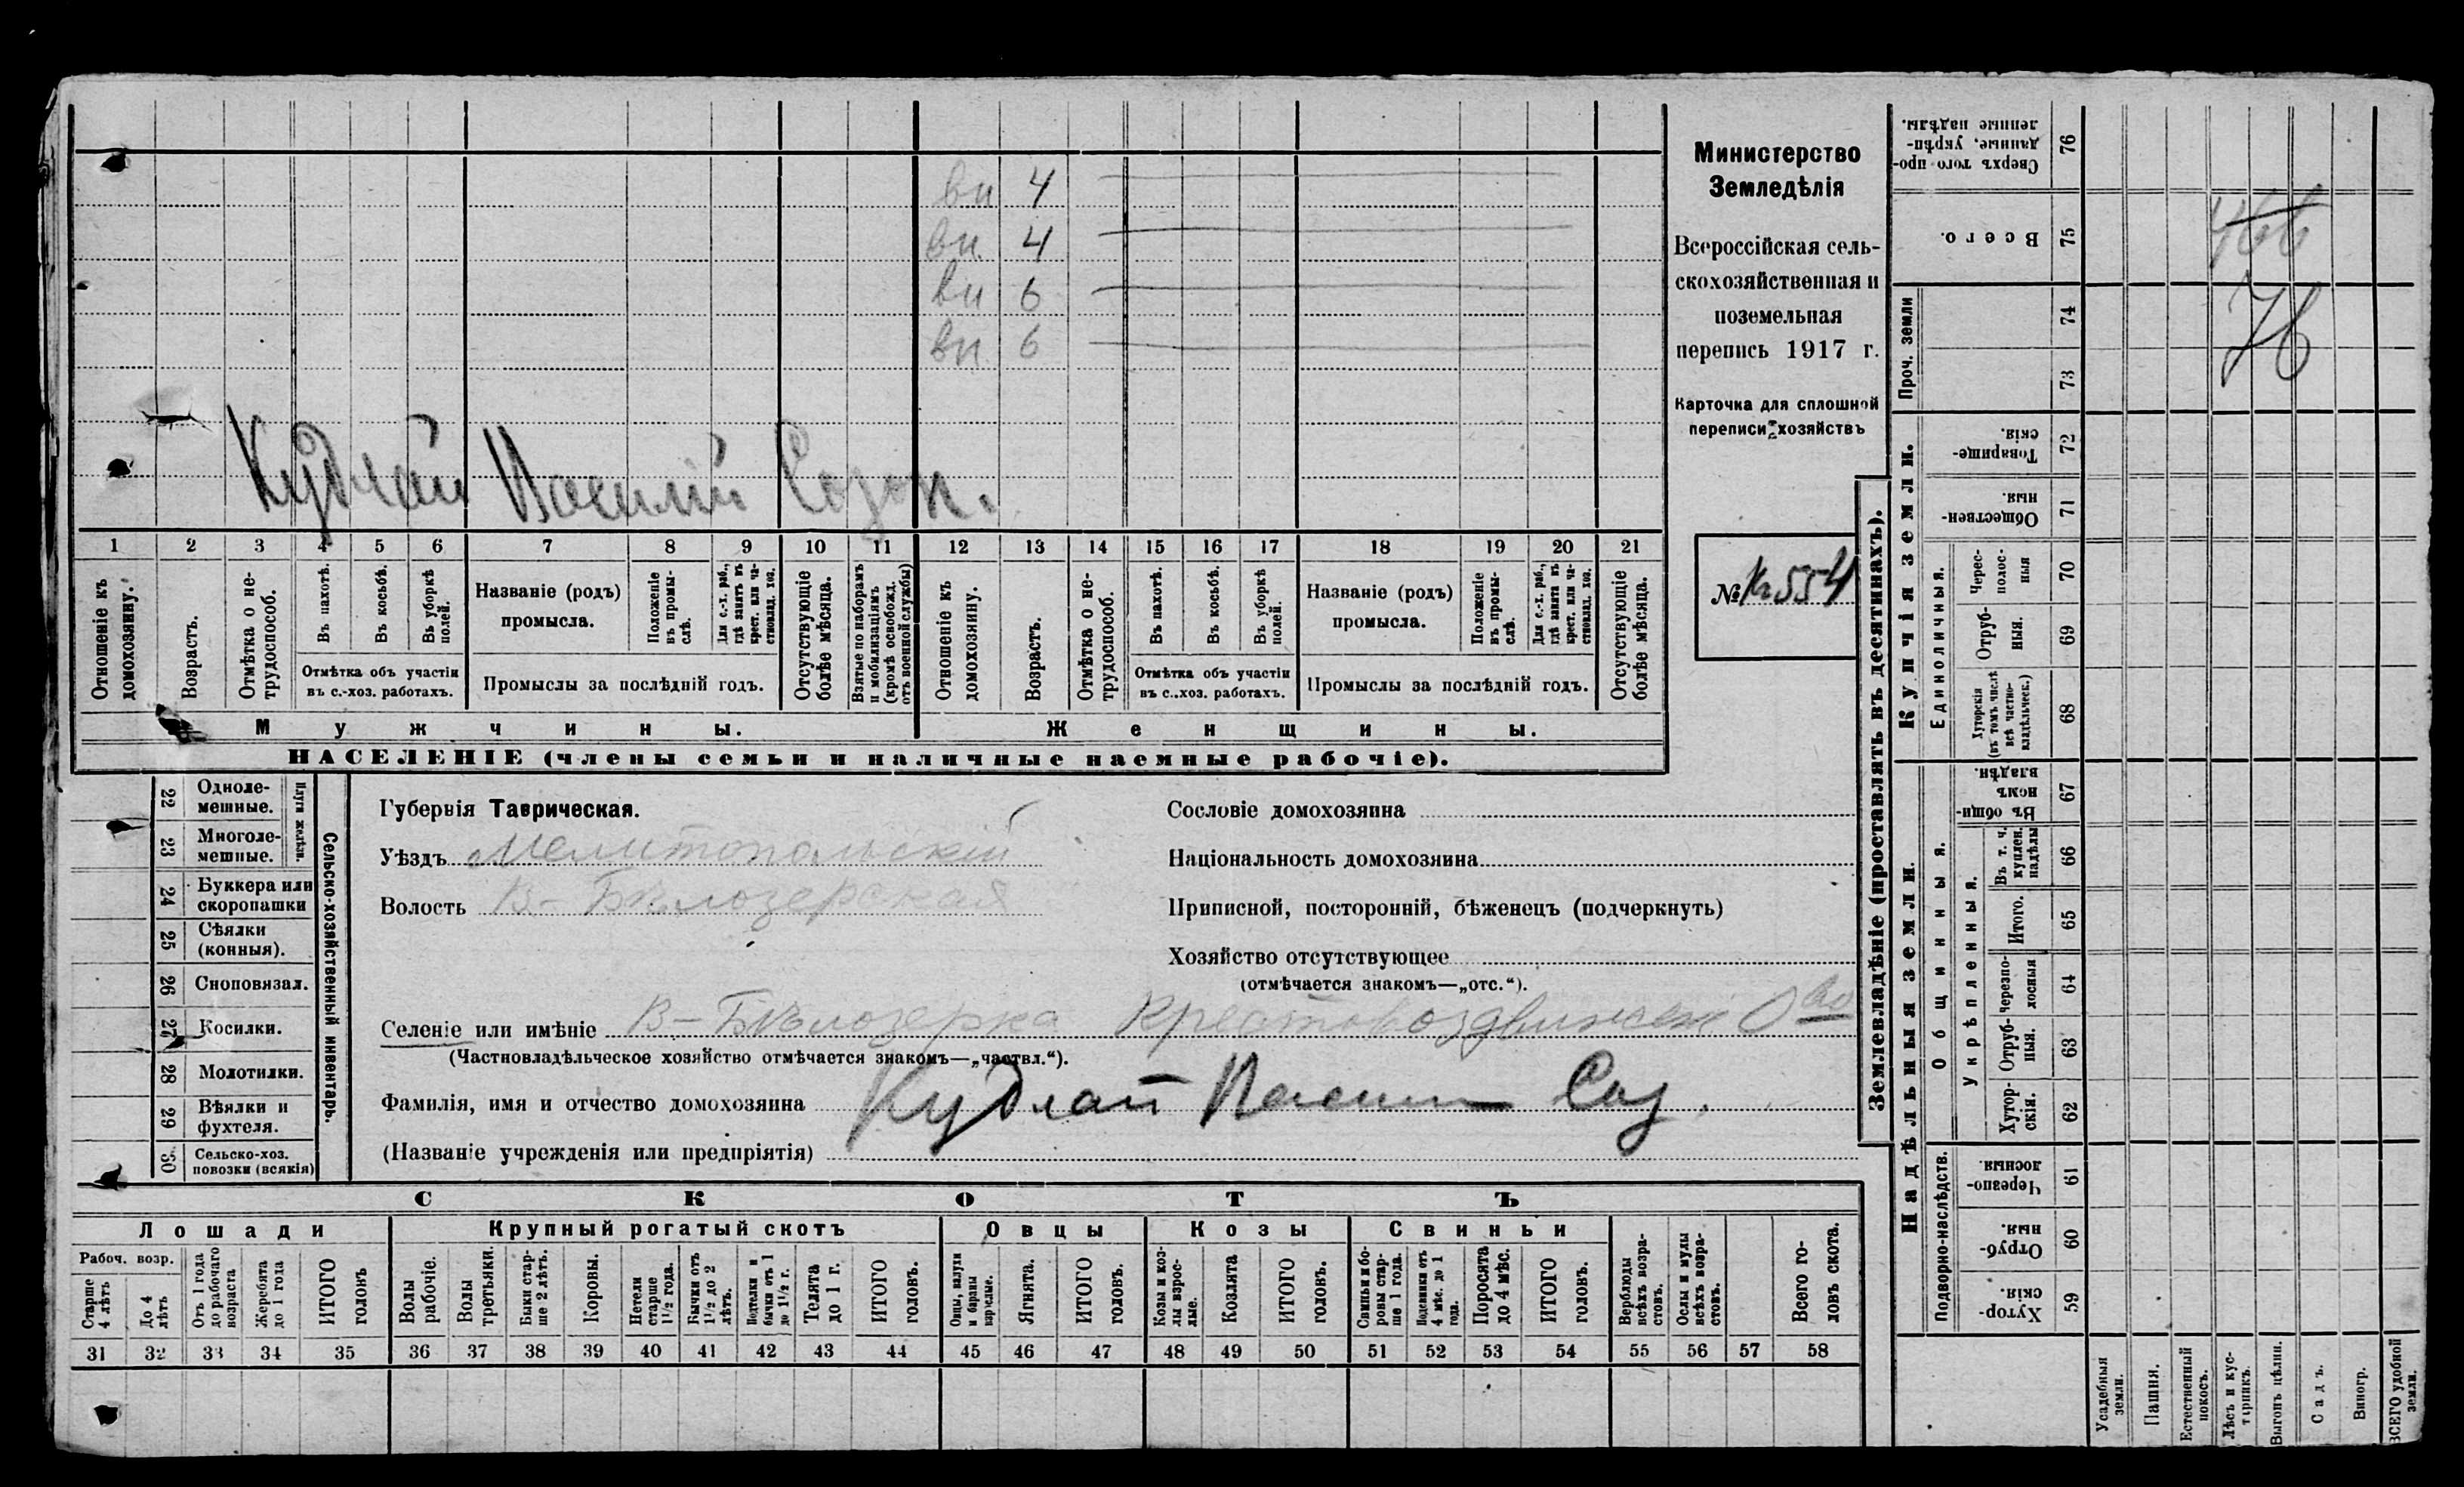 вн 4
вн. 4
вн 6
вн. 6
Кудлай Василій Созон.
1 2 3 4 5 6 7 8 9 10 11 12 13 14 15 16 17 18 19 20 21
Отношеніе къ домохозяину.
Возрастъ.
Отмѣтка о не-
трудоспособ.
Въ пахотѣ.
Въ косьбѣ.
Въ уборкѣ полей.
Отмѣтка объ участіи
въ с.-хоз. работахъ.
Названіе (родъ)
промысла.
Положеніе
въ промы-
слѣ.
Для с.-х. раб.,
гдѣ занятъ въ
крест. или ча-
стновлад. хоз.
Промыслы за послѣдній годъ.
Отсутствующіе
болѣе мѣсяца.
Взятые по наборамъ
и мобилизаціямъ
(кромѣ освобожд.
отъ военной службы)
Отношеніе къ
домохозяину.
Возрастъ.
Отмѣтка о не-
трудоспособ.
Въ пахотѣ.
Въ косьбѣ.
Въ уборкѣ
полей.
Отмѣтка объ участіи
въ с..хоз. работахъ.
Названіе (родъ)
промысла.
Положеніе
въ промы-
слѣ.
Для с.-х. раб.,
гдѣ занята въ
крест. или ча-
стновлад. хоз.
Промыслы за послѣдній годъ.
Отсутствующіе
болѣе мѣсяца.
Мужчины.
Женщины.
НАСЕЛЕНІЕ (члены семьи и наличные наемные рабочіе).
Министерство
Земледѣлія
Всероссійская сель-
скохозяйственная и
поземельная
перепись 1917 г.
Карточка для сплошной
переписи хозяйствъ
№ К 554
22 Одноле-
мешные.
23 Многоле-
мешные.
Плуги желѣзн.
24 Буккера или
скоропашки
25 Сѣялки
(конныя).
26 Сноповязал.
27 Косилки.
28 Молотилки.
29 Вѣялки и
фухтеля.
30 Сельско-хоз.
повозки (всякія)
Сельско-хозяйственный инвентарь.
Губернія Таврическая.
Уѣздъ Мелитопольскій
Волость В-Бѣлозерская
Селеніе или имѣніе В-Бѣлозерка Крестовоздвижен О-во
(Частновладѣльческое хозяйство отмѣчается знакомъ—„частвл.“).
Фамилія, имя и отчество домохозяина Кудлай Василий Соз.
(Названіе учрежденія или предпріятія)
Сословіе домохозяина
Національность домохозяина
Приписной, посторонній, бѣженецъ (подчеркнуть)
Хозяйство отсутствующее
(отмѣчается знакомъ—„отс.“).
СКОТЪ
Лошади
Крупный рогатый скотъ
Овцы
Козы
Свиньи
Рабоч. возр.
Старше
4 лѣтъ
До 4
лѣтъ
Отъ 1 года
до рабочаго
возраста
Жеребята
до 1 года
ИТОГО
головъ
Волы
рабочіе.
Волы
третьяки.
Быки стар-
ше 2 лѣтъ.
Коровы.
Нетели
старше
1½ года.
Бычки отъ
1½ до 2
лѣтъ.
Подтелки и
бычки отъ 1
до 1½ г.
Телята
до 1 г.
ИТОГО
головъ.
Овцы, валухи
и бараны
взрослые.
Ягнята.
ИТОГО
головъ.
Козы и коз-
лы взрос-
лые.
Козлята
ИТОГО
головъ.
Свиньи и бо-
ровы стар-
ше 1 года.
Подсвинки отъ
4 мѣс. до 1
года.
Поросята
до 4 мѣс.
ИТОГО
головъ.
Верблюды
всѣхъ возра-
стовъ.
Ослы и мулы
всѣхъ возра-
стовъ.
Всего го-
ловъ скота.
31 32 33 34 35 36 37 38 39 40 41 42 43 44 45 46 47 48 49 50 51 52 53 54 55 56 57 58
Землевладѣніе (проставлять въ десятинахъ).
Сверхъ того про-
данные, укрѣп-
ленные надѣлы.
76
Всего.
75
Проч. земли
74
73
Купчія земли.
Товарище-
скія.
72
Обществен-
ныя.
71
Единоличныя.
Черес-
полос-
ныя
70
Отруб-
ныя.
69
Хуторскія
(въ томъ числѣ
всѣ частно-
владѣльческ.)
68
Надѣльныя земли.
Общинныя.
Въ общи-
номъ
владѣн.
67
Укрѣпленныя.
Въ т. ч.
куплен.
надѣлы
66
Итого.
65
Черезпо-
лосныя
64
Отруб-
ныя.
63
Хутор-
скія.
62
Подворно-наслѣдств.
Черезпо-
лосныя.
61
Отруб-
ныя.
60
Хутор-
скія.
59
Усадебныя
земли.
Пашня.
Естественный
покосъ.
Лѣсъ и кус-
тарникъ.
Выгонъ цѣлин.
Садъ.
Виногр.
ВСЕГО удобной
земли.